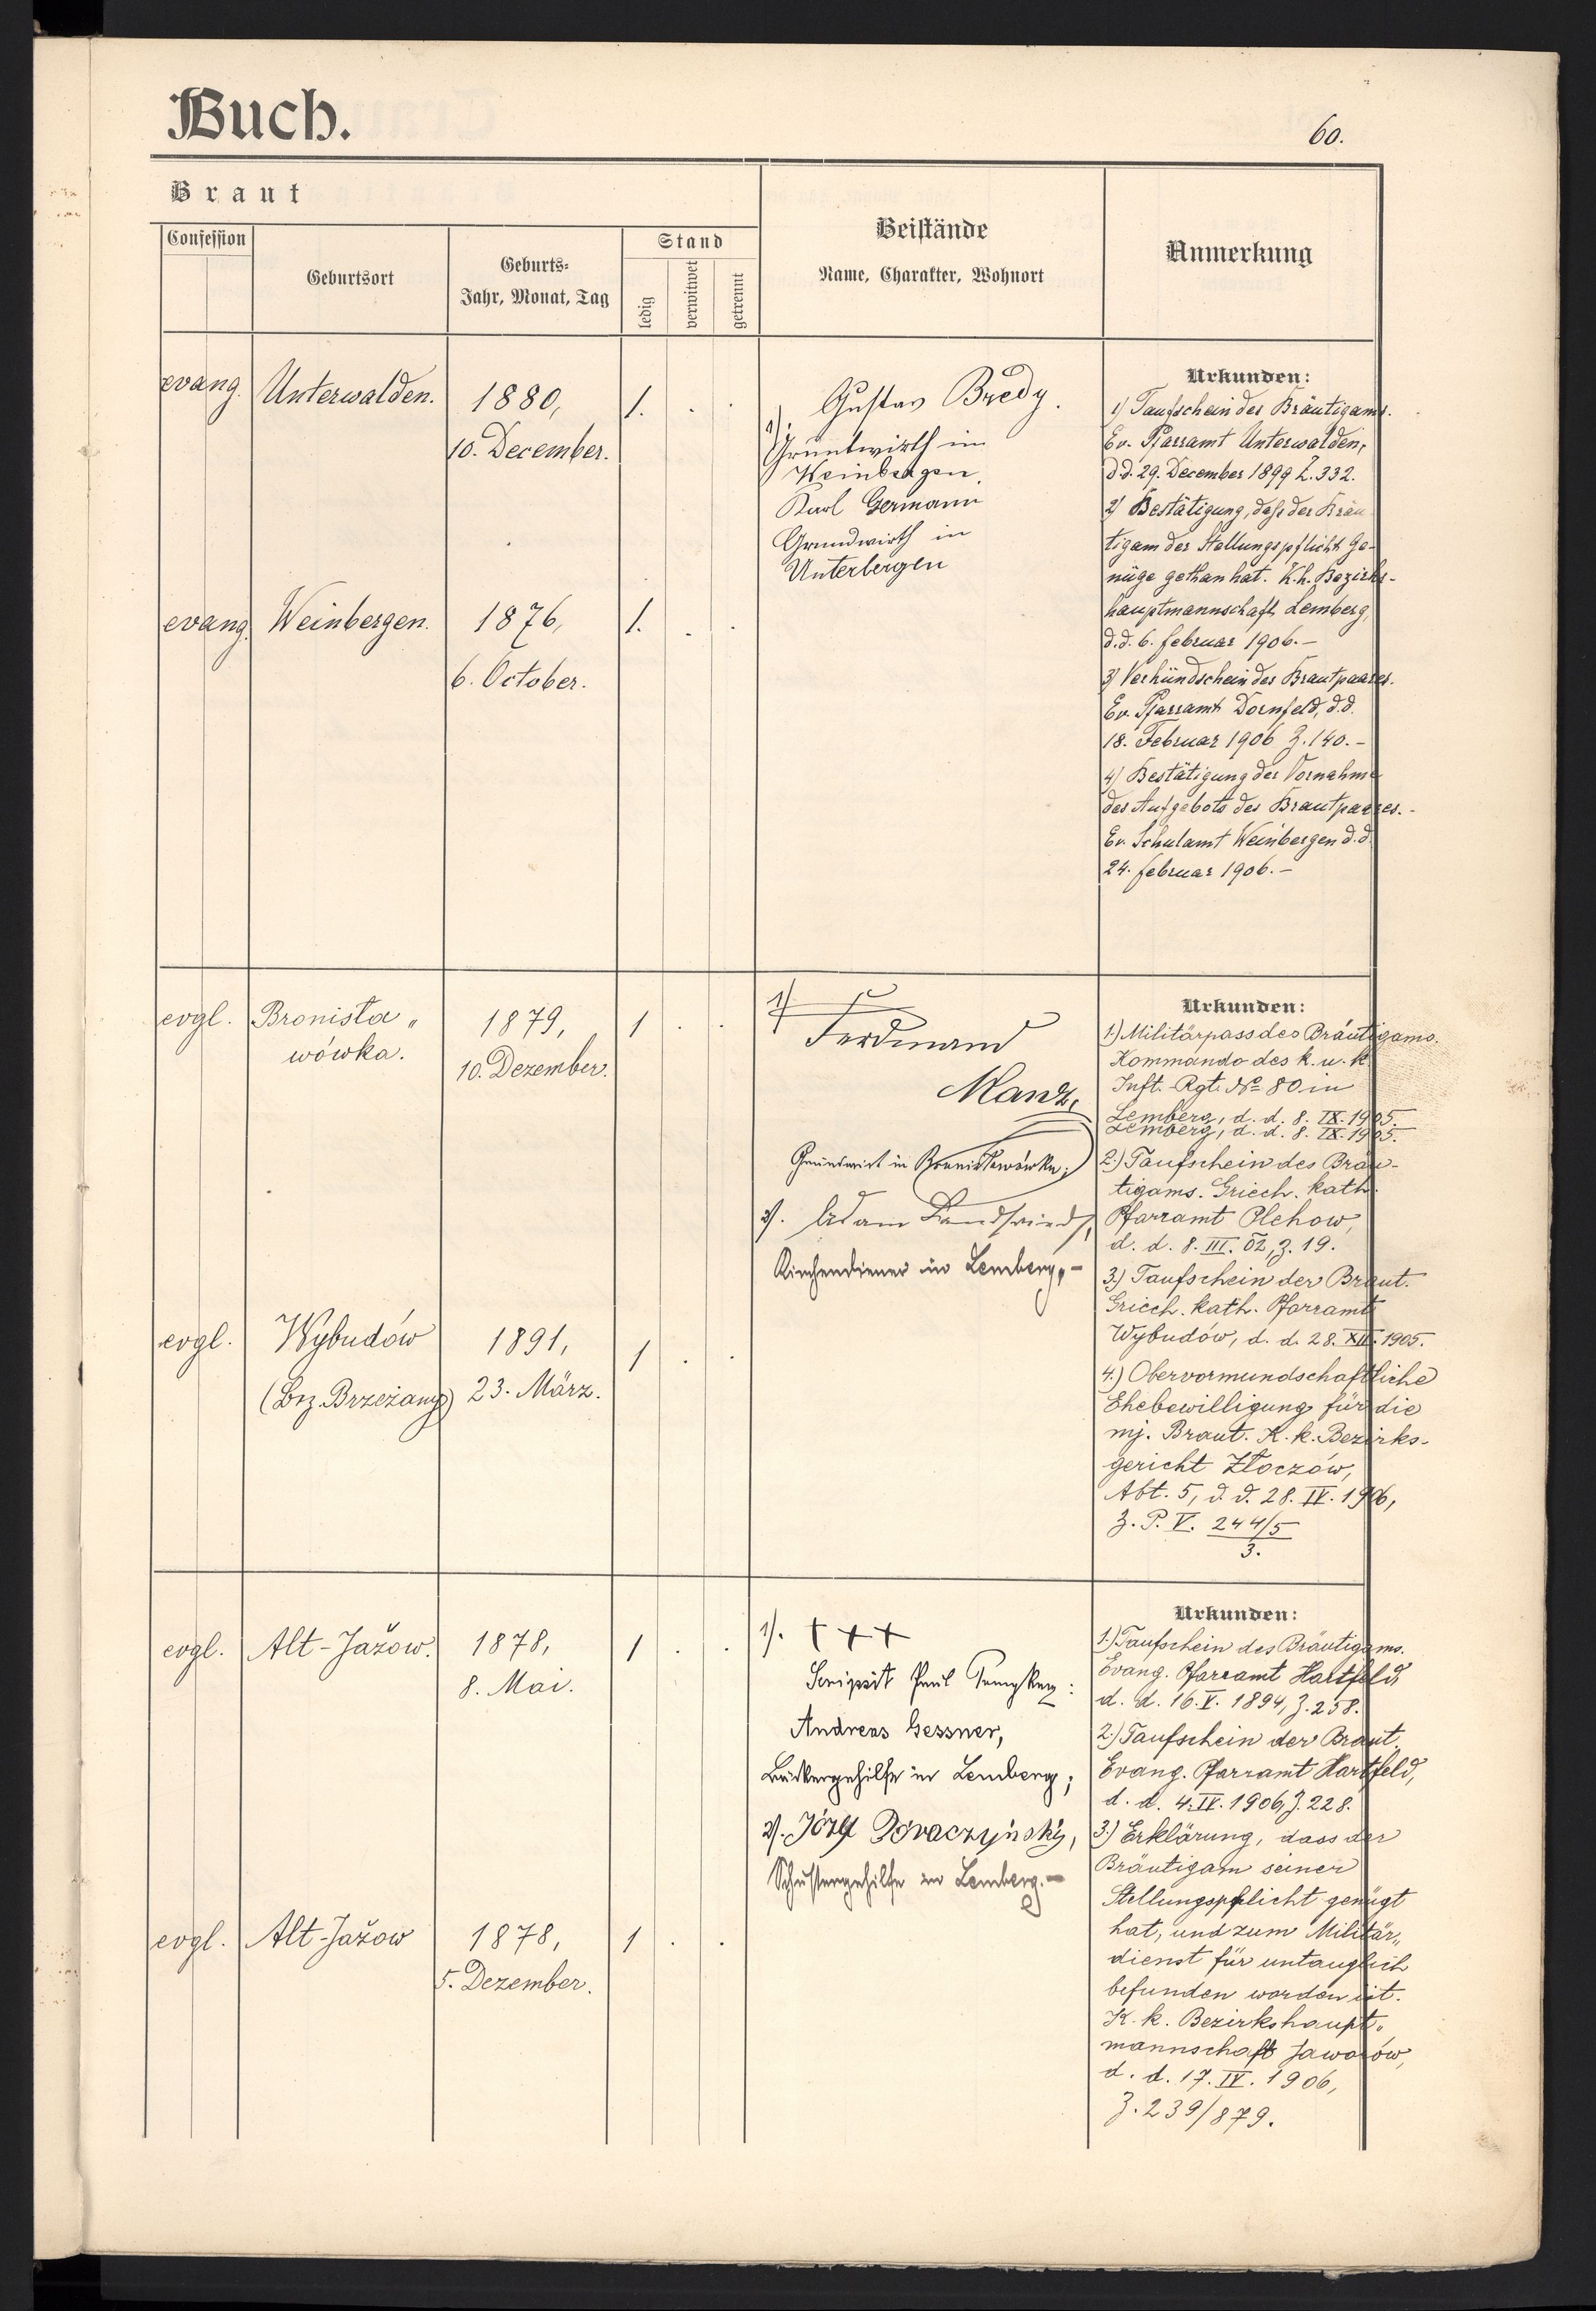 Buch.
60.
Braut
Confession
Geburtsort
Geburts-
Jahr, Monat, Tag
Stand
ledig
verwitwet
getrennt
Beistände
Name, Charakter, Wohnort
Anmerkung
evang. Unterwalden. 1880, 1. . .
10. December.
1). Gustav Bredy.
Grundwirth in
Weinbergen.
Karl Germann
Grundwirth in
Unterbergen
evang. Weinbergen. 1876, 1. . .
6. October.
Urkunden:
1) Taufschein des Bräutigams.
Ev. Pfarramt Unterwalden,
d.d. 29. December 1899 Z. 332.
2) Bestätigung, daß der Bräu-
tigam der Stellungspflicht Ge-
nüge gethan hat. K.k. Bezirks-
hauptmannschaft Lemberg,
d.d. 6. februar 1906.–
3) Verkündschein des Brautpaares.
Ev. Pfarramt Dornfeld, d.d.
18. Februar 1906 Z. 140.–
4) Bestätigung der Vornahme
des Aufgebots des Brautpaares.–
Ev. Schulamt Weinbergen d.d.
24. februar 1906.–
evgl. Bronisła„ 1879, 1 . .
wówka. 10. Dezember.
1) Ferdinand
Manz,
Grundwirt in Bronisławówka;
2). Adam Landfried,
Kirchendiener in Lemberg.–
evgl. Wybudów 1891, 1 . .
(Bez. Brzeżany) 23. März.
Urkunden:
1.) Militärpass des Bräutigams.
Kommando des k. u. k.
Inft.-Rgt. No 80 in
Lemberg, d. d. 8. IX. 1905.
2.) Taufschein des Bräu-
tigams. Griech. kath.
Pfarramt Olchow,
d. d. 8. III. 02, Z. 19.
3.) Taufschein der Braut.
Griech. kath. Pfarramt
Wybudów, d. d. 28. XII. 1905.
4.) Obervormundschaftliche
Ehebewilligung für die
mj. Braut. K. k. Bezirks-
gericht Złoczów,
Abt. 5, d. d. 28. IV. 1906,
Z. P. V. 244/5
3.
evgl. Alt-Jažow. 1878, 1 . .
8. Mai.
1). +++
Scripsit Paul
Andreas Gessner,
Bäckergehilfe in Lemberg;
2). Józef
Schustergehilfe in Lemberg.–
evgl. Alt-Jažow 1878, 1 . .
5. Dezember.
Urkunden:
1.) Taufschein des Bräutigams.
Evang. Pfarramt Hartfeld,
d. d. 16. V. 1894, Z. 258.
2.) Taufschein der Braut.
Evang. Pfarramt Hartfeld,
d. d. 4. IV. 1906, Z. 228.
3.) Erklärung, dass der
Bräutigam seiner
Stellungspflicht genügt
hat, und zum Militär„
dienst für untauglich
befunden worden ist.
K. k. Bezirkshaupt„
mannschaft Jaworów,
d. d. 17. IV. 1906,
Z. 239/879.